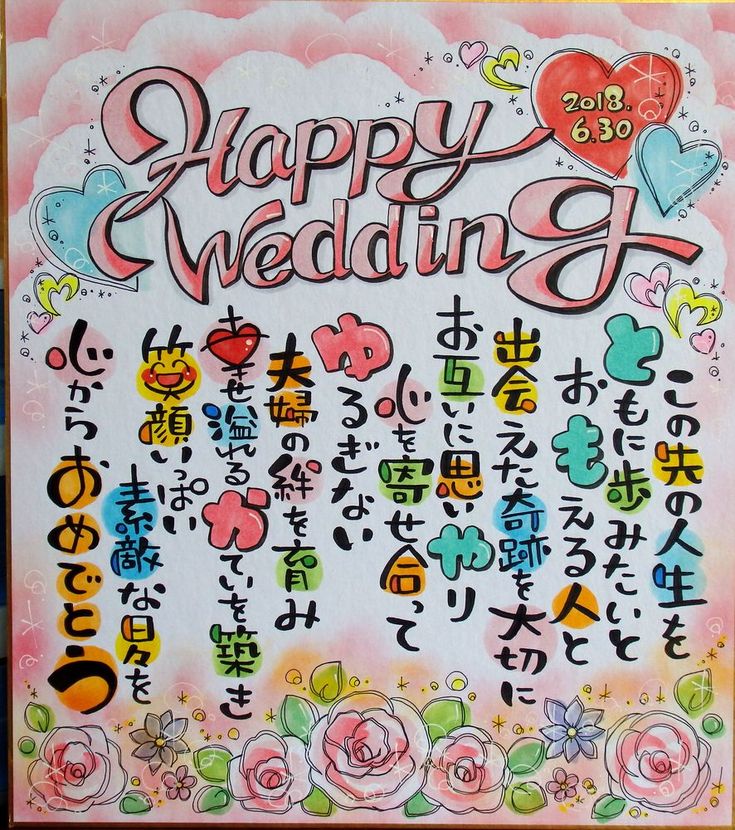 Happy
Wedding
2018.
6.30
この先の人生を
ともに歩みたいと
おもえる人と
出会えた奇跡を大切に
お互いに思いやり
心を寄せ合って
ゆるぎない
夫婦の絆を育み
幸せ溢れるかていを築き
笑顔いっぱい
素敵な日々を
心からおめでとう